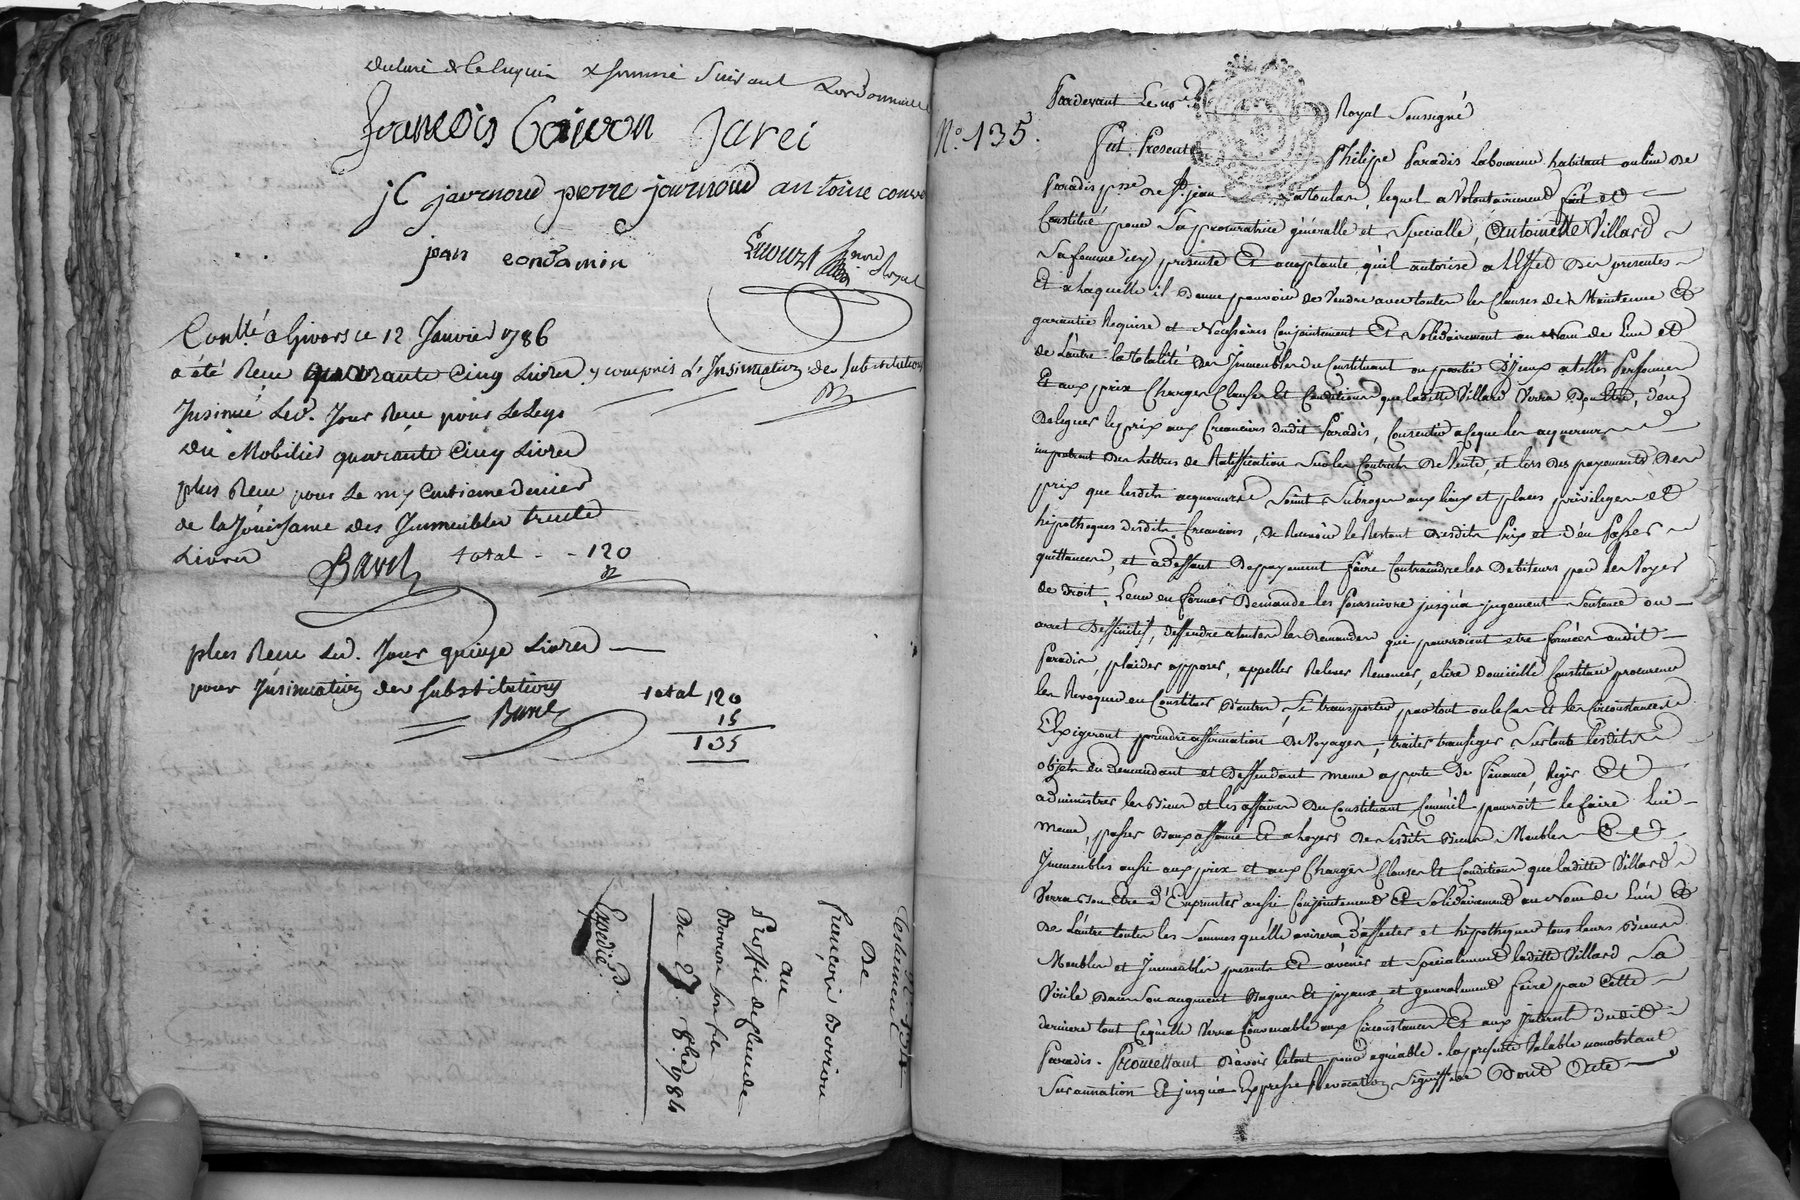 de ce Enquis & sommé Suivant Lordonnance
francois Boiron Jarei
jC journoud pierre journoud antoine
jean condamin
Conllé a Givors ce 12 Janvier 1786
a été Receu quarante Cinq Livres y compris L'Insinuation des Substitutions
Insinué Led. Jour Receu pour Le Legs
Du Mobilier quarante Cinq Livres
plus Receu pour Le my Centieme Denier
de la Jouissance des Immeubles trente
Livres total - - 120
Bavet
plus Receu Led. Jour quinze Livres
pour Insinuation des Substitutions
total 120
15
135
Testament
De
françois Boiron
au
Proffit de flaude
Boiron son fils
Du 27. 8bre 1784
Expedié.
N.° 135.
Pardevant Le no.re Royal Soussigné
fut Present Philippe Paradis Laboureur habitant au lieu de
Paradis psse de St. jean a Toulas, lequel a Volontairement fait et
Constitué pour Sa procuratrice généralle et Specialle, Antoinette Villard
Sa femme icy presente Et acceptante qu'il autorise a L'Effet Des presentes
Et a laquelle il Donne pouvoir de Vendre avec toutes les Clauses de Maintenue Et
garantie Requise et Necessaires Conjointement Et Solidairement au Nom de L'un et
de L'autre la totalité Des Immeubles du Constituant ou partie D'Iceux a telles Personnes
Et aux prix Charges Clauses Et Conditions que laditte Villard Verra Bon Etre, d'en
Deleguer le prix aux Creanciers dudit Paradis, Consentir a Ce que les acquereurs
impetrent Des Lettres de Ratiffication Sur les Contrats De Vente, et lors Des payements Des
prix que lesdits acquereurs Soient Subrogés aux lieux et places privileges et
hipotheques desdits Creanciers, De Recevoir le Restant Desdits Prix et d'En Passer
quittances, et a Deffaut De payement faire Contraindre les Debiteurs par les Voyes
de Droit, Leur en former Demande les Poursuivre jusqu'a jugement Sentence ou
arret Deffinitif, deffendre a toutes les Demandes qui pourroient etre formées audit
Paradis, plaider opposer, appeller Relever Renoncer, elire Domicille Constituer procureurs
les Revoquer en Constituer D'autres, Se transporter partout ou le Cas Et les Circonstances
L'Exigeront prendre affirmation De Voyages, traiter transiger Sur tous lesdits
objets En Demandant et Deffendant meme a perte De finance, Regir Et
administrer les Biens et les affaires Du Constituant Comme il pourroit le faire Lui
meme, passer Baux a fferme Et a Loyers De Sesdits Biens Meubles Et
Immeubles aussi aux prix et aux Charges Clauses Et Conditions que laditte Villard
Verra Bon Etre d'Emprunter aussi Conjointement Et Solidairement au Nom de L'un Et
De L'autre toutes les Sommes qu'elle avisera D'affecter et hipothequer tous leurs Biens
Meubles et Immeubles presents Et avenir et Specialement laditte Villard Sa
Virile Dans Son augment Bagues Et joyaux, et generalement faire par Cette
derniere tout Ce qu'elle Verra Convenable aux Circonstances Et aux Interêt Dudit
Paradis. Promettant D'avoir letout pour agréable. la presente Valable nonobstant
Surannation Et jusqu'a Expresse Revocation Signiffiée Dont Acte